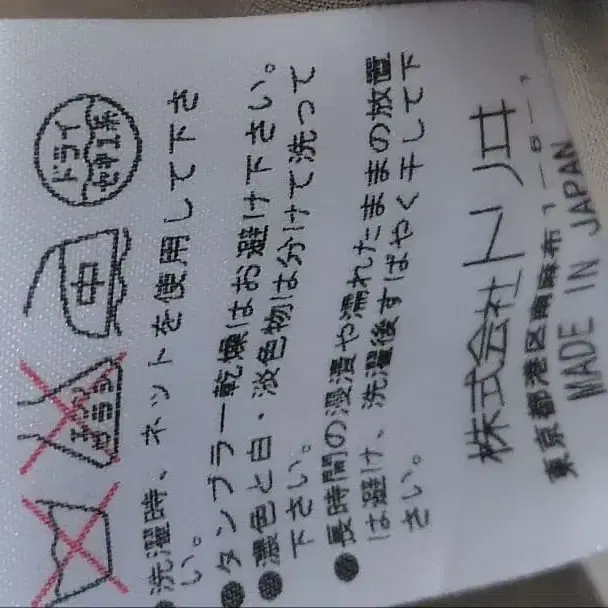 エンソ
サラシ
中
ドライ
セキユ系
●洗濯時、ネットを使用して下さ
い。
●タンブラー乾燥はお避け下さい。
●濃色と白・淡色物は分けて洗って
下さい。
●長時間の浸漬や濡れたままの放置
は避け、洗濯後すばやく干して下
さい。
株式会社
東京都港区南麻布
MADE IN JAPAN